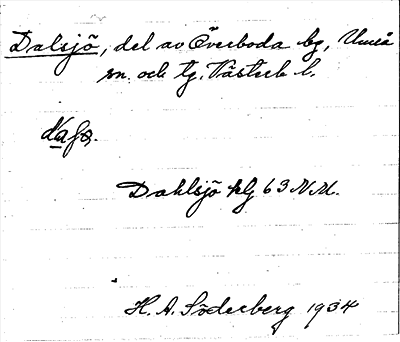 Dalsjö, del av Överboda by, Umeå
sn. och tg. Västerb l.
Dahlsjö klg 63 N.M.
H. A. Söderberg 1934